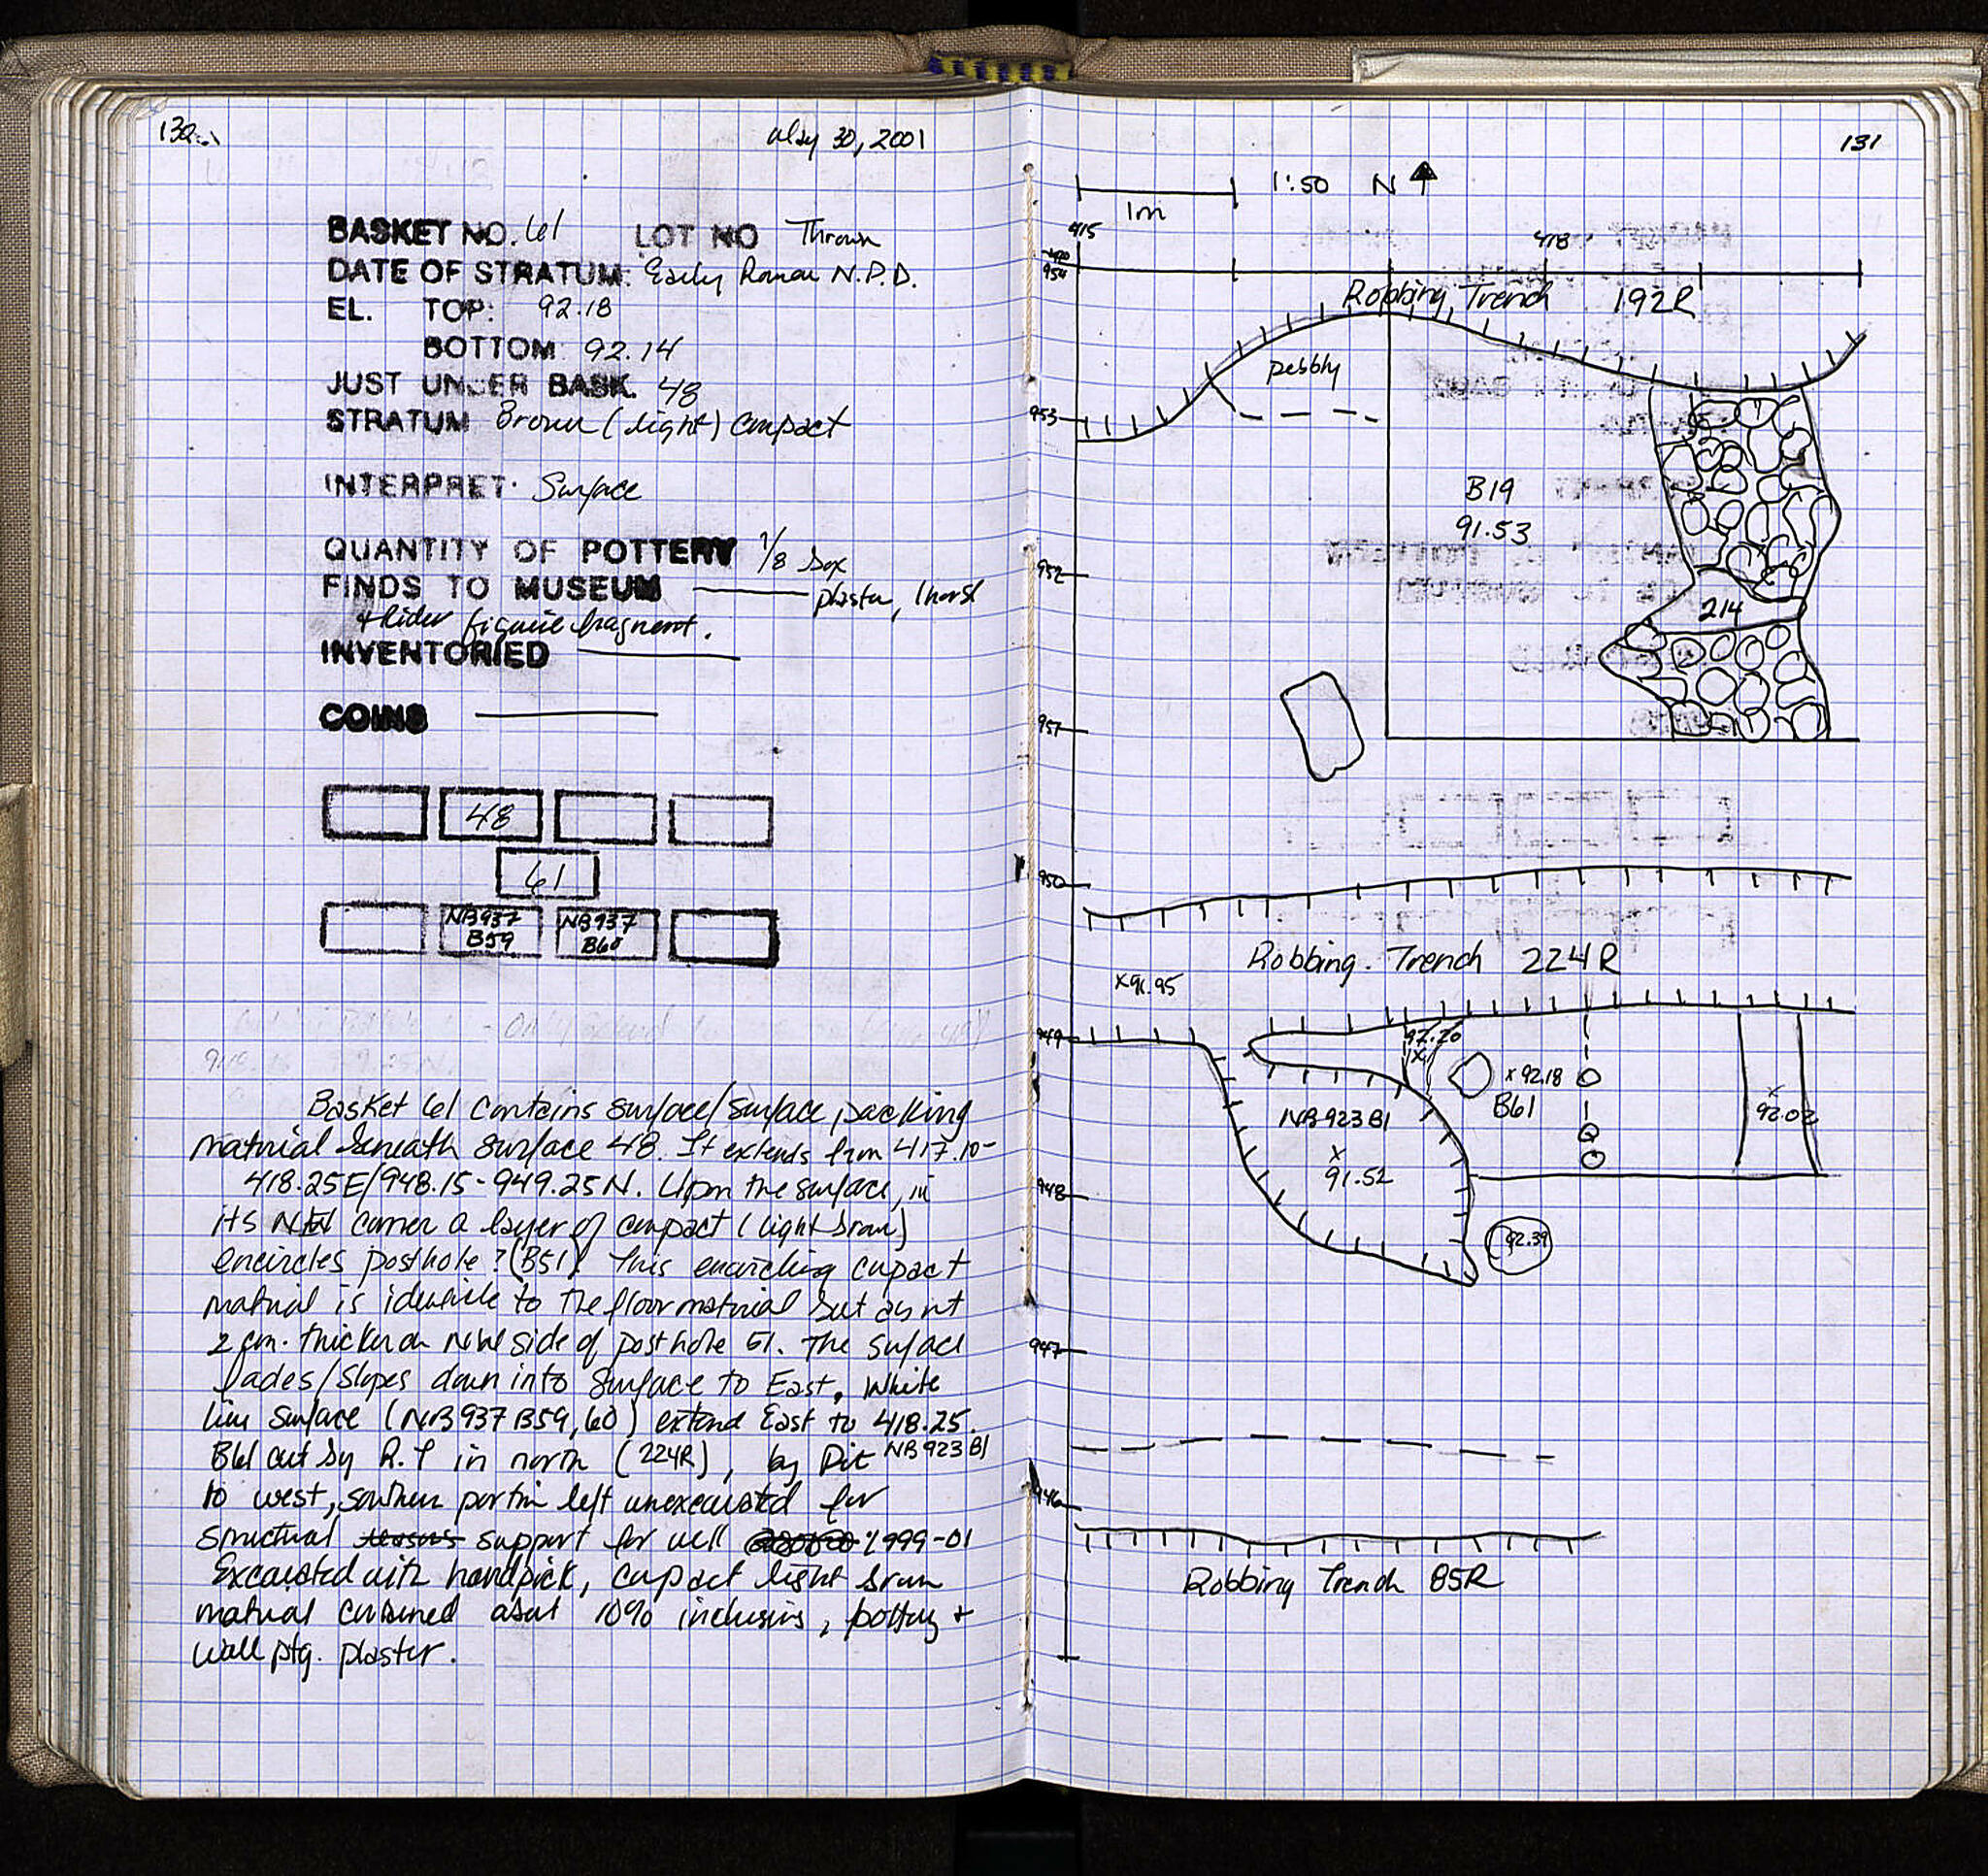 130
May 30, 2001
BASKET NO. 61 LOT NO Thrown
DATE OF STRATUM: Early Roman N.P.D.
EL. TOP: 92.18
BOTTOM: 92.14
JUST UNDER BASK. 48
STRATUM Brown (light) compact
INTERPRET: Surface
QUANTITY OF POTTERY 1/8 box
FINDS TO MUSEUM plaster, 1 horse
+ rider figurine fragment.
INVENTORIED
COINS
48
61
NB937 B59 NB937 B60
Basket 61 contains surface/surface packing
material beneath surface 48. It extends from 417.10-
418.25E/948.15-949.25N. Upon the surface, in
its corner a layer of compact (light brown)
encircles posthole? (B51). This encircling compact
material is identicle to the floor material but
2 cm. thicker on NW side of posthole 51. The surface
fades/slopes down into surface to East. White
lime surface (NB937 B59, 60) extend East to 418.25.
B61 cut by R.T in north (224R), by Pit NB923 B1
to west, southern portion left unexcavated for
structural support for well 1999-01
Excavated with handpick, compact light brown
material contained about 10% inclusions, pottery +
wall ptg. plaster.
131
1:50 N
1m
415
418
954
Robbing Trench 192R
pebbly
953
B19
91.53
952
214
951
950
Robbing Trench 224R
x91.95
949
92.20
x
x 92.18
B61
x
92.02
NB923B1
x
91.52
948
92.39
947
946
Robbing Trench 85R